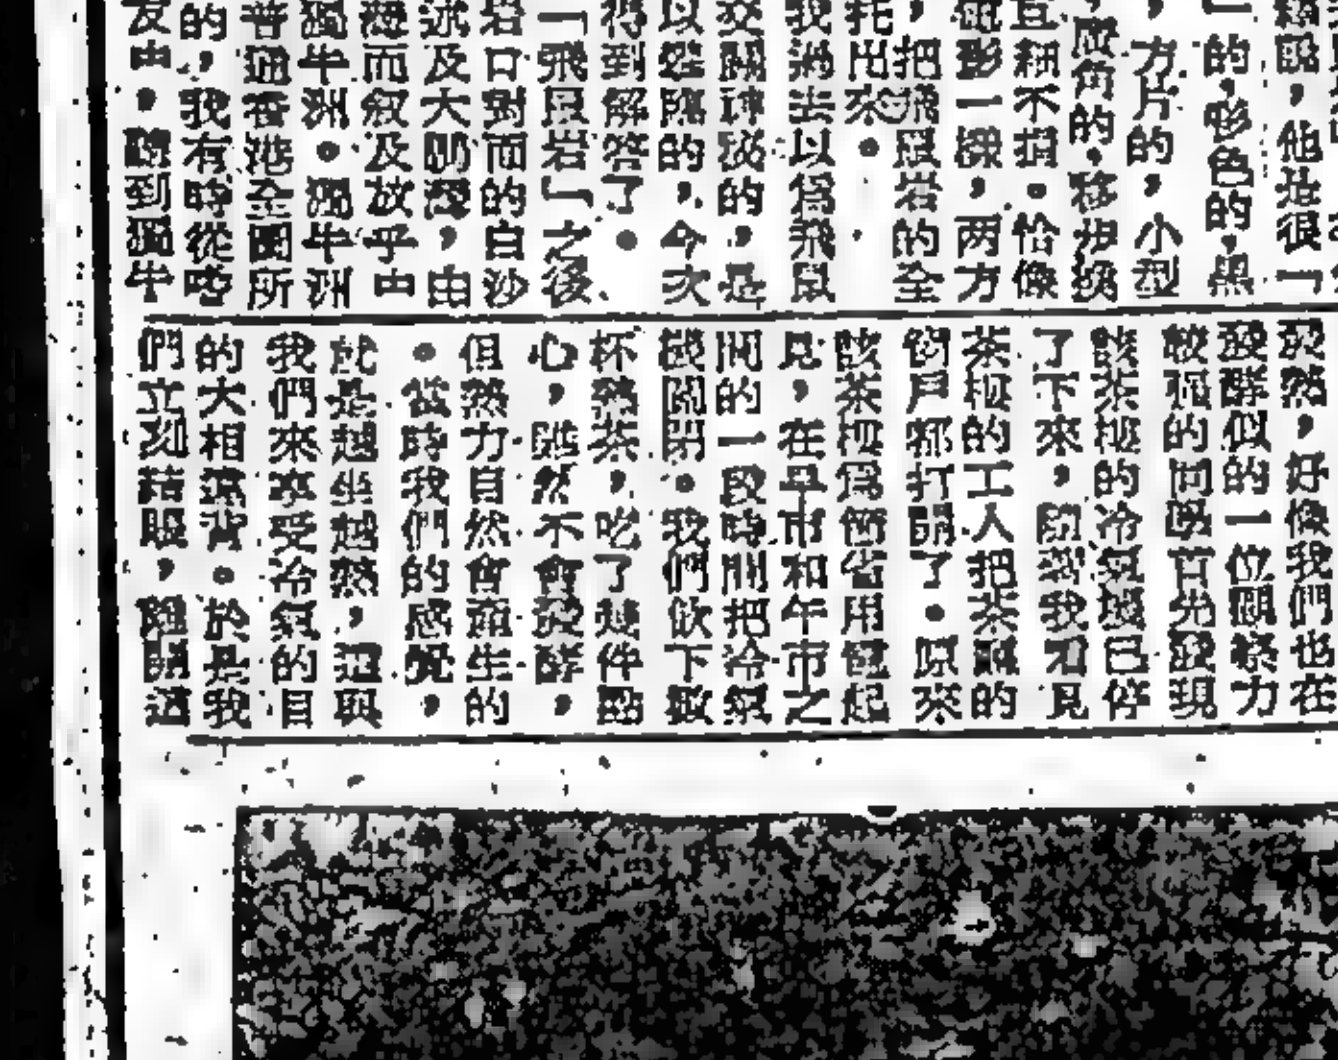 眼,他是很一
」的,彩色的,黑
,方片的,小型
,廣角的,移步換
不損。恰像
電影一樣,两方
,把飛鼠岩的全
托出來。
我過去以爲飛鼠
交關神秘的,是
以的,今次
得到解答了。
「飛鼠岩」之後
岩口對面的白沙
述及大灣,由
而叙及放乎由
獨牛洲。獨牛洲
普通香港全圖所
的,我有時從
友由。聽到獨牛
然,好像我們也在
發酵似的一位觀察力
較強的同首先發現
該茶樓的冷氣機已停
了下來,跟着我才見
茶樓的工人把茶樓的
窗戶都打開了。原來
該茶樓爲節省用電起
見,在早市和午市之
間的一段時間把冷氣
機關閉。我們飲下數
杯熱茶,吃了幾件點
心,雖然不會發酵,
但熱力自然會產生的
。當時我們的感覺,
就是越坐越熱,這與
我們來享受冷氣的目
的大相違背。於是我
們立刻結賬,離開這